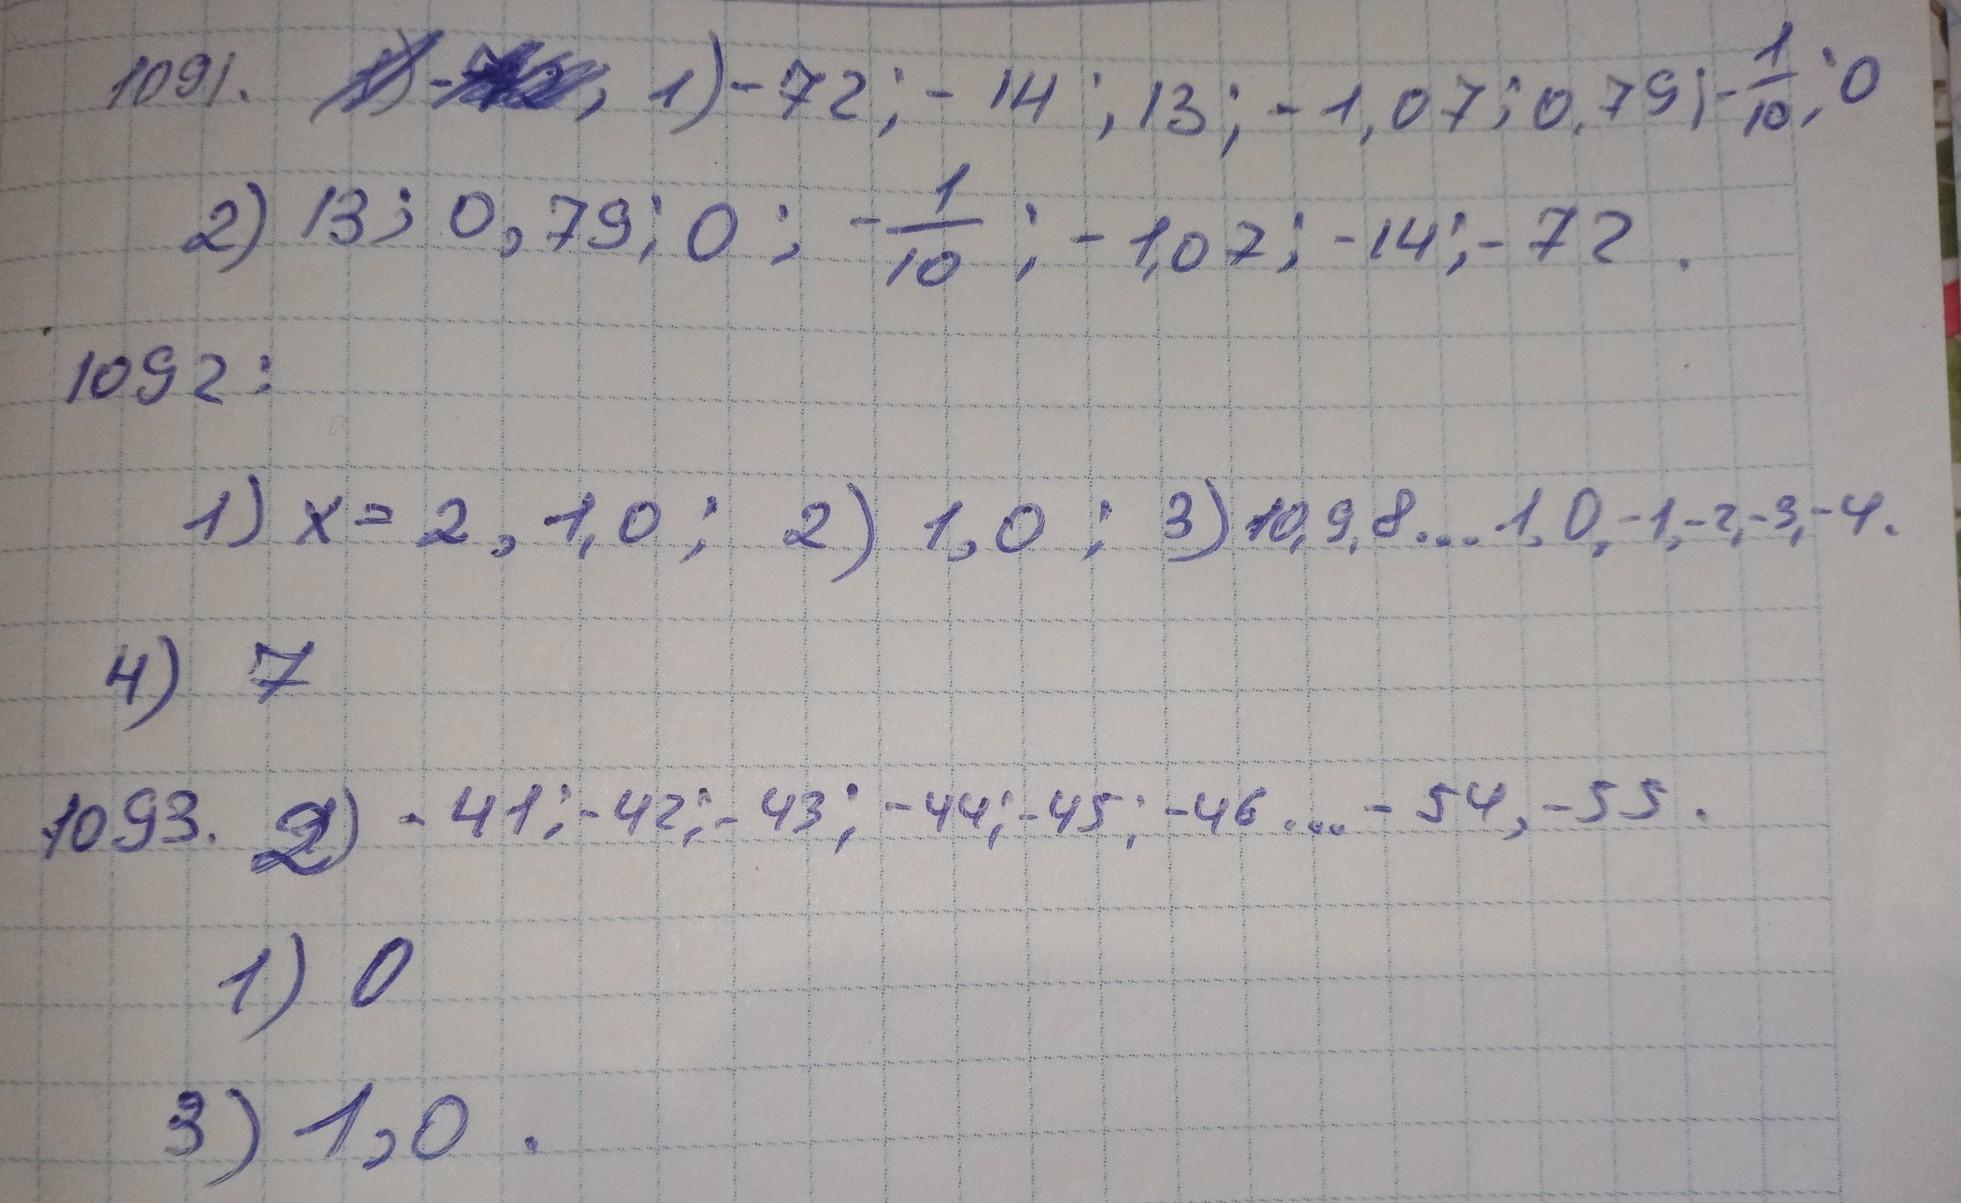 1091. 1) -72; -14; 13; -1,07; 0,79; -1/10; 0
2) 13; 0,79; 0; -1/10; -1,07; -14; -72.
1092:
1) x = 2, 1, 0; 2) 1, 0; 3) 10, 9, 8... 1, 0, -1, -2, -3, -4.
4) 7
1093. 2) -41; -42; -43; -44; -45; -46... -54, -55.
1) 0
3) 1, 0.